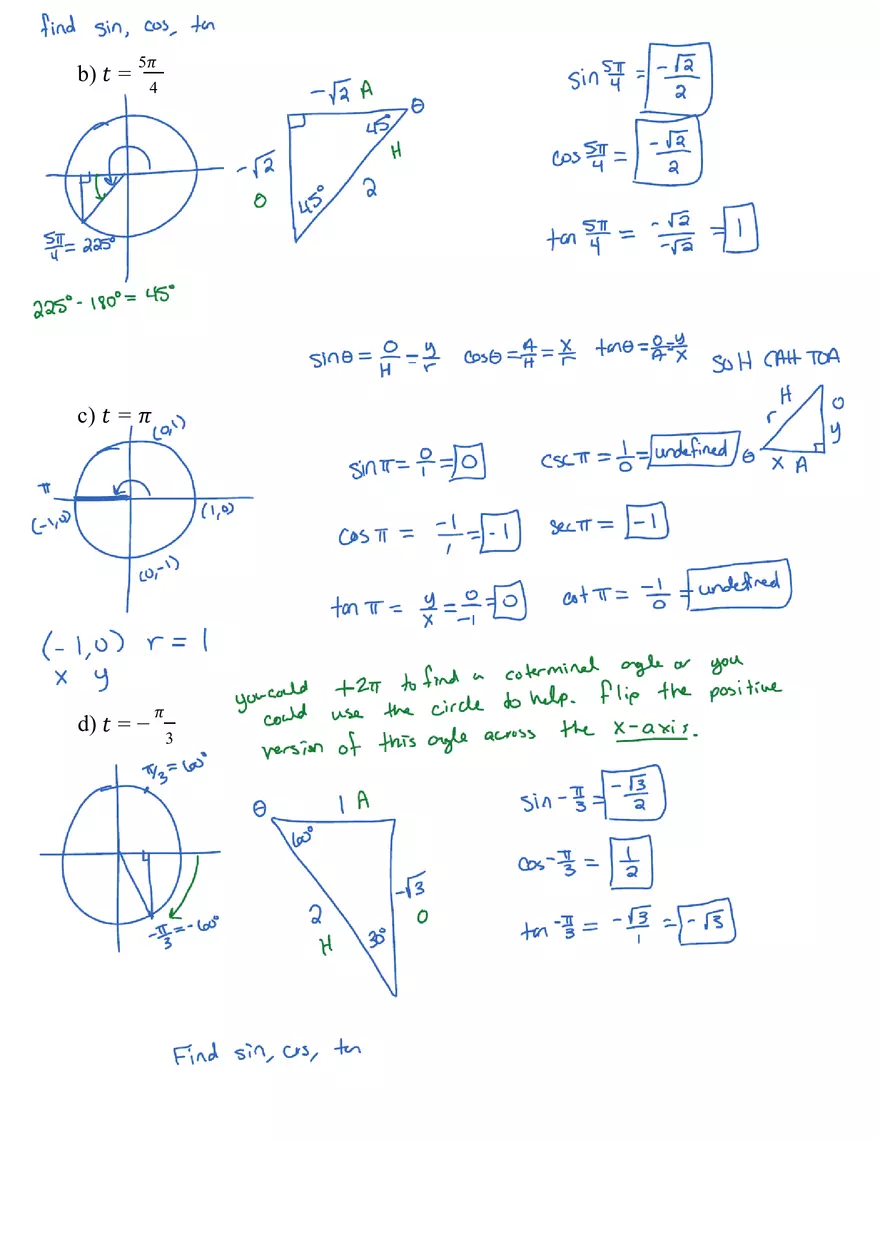 find sin, cos, tan
b) t = 5π/4
-√2 A
θ
45°
-√2
O
45°
H
2
sin 5π/4 = -√2/2
cos 5π/4 = -√2/2
tan 5π/4 = -√2/-√2 = 1
5π/4 = 225°
225° - 180° = 45°
sinθ = O/H = y/r cosθ = A/H = x/r tanθ = O/A = y/x SOH CAH TOA
c) t = π
(0,1)
π
(-1,0)
(1,0)
(0,-1)
H
r
O
y
θ
x A
sin π = 0/1 = 0 csc π = 1/0 = undefined
cos π = -1/1 = -1 sec π = -1
tan π = y/x = 0/-1 = 0 cot π = -1/0 = undefined
(-1,0) r = 1
x y
you could +2π to find a coterminal angle or you
could use the circle to help. flip the positive
version of this angle across the x-axis.
d) t = -π/3
π/3 = 60°
-π/3 = -60°
θ
1 A
60°
-√3
O
2
H
30°
sin -π/3 = -√3/2
cos -π/3 = 1/2
tan -π/3 = -√3/1 = -√3
Find sin, cos, tan